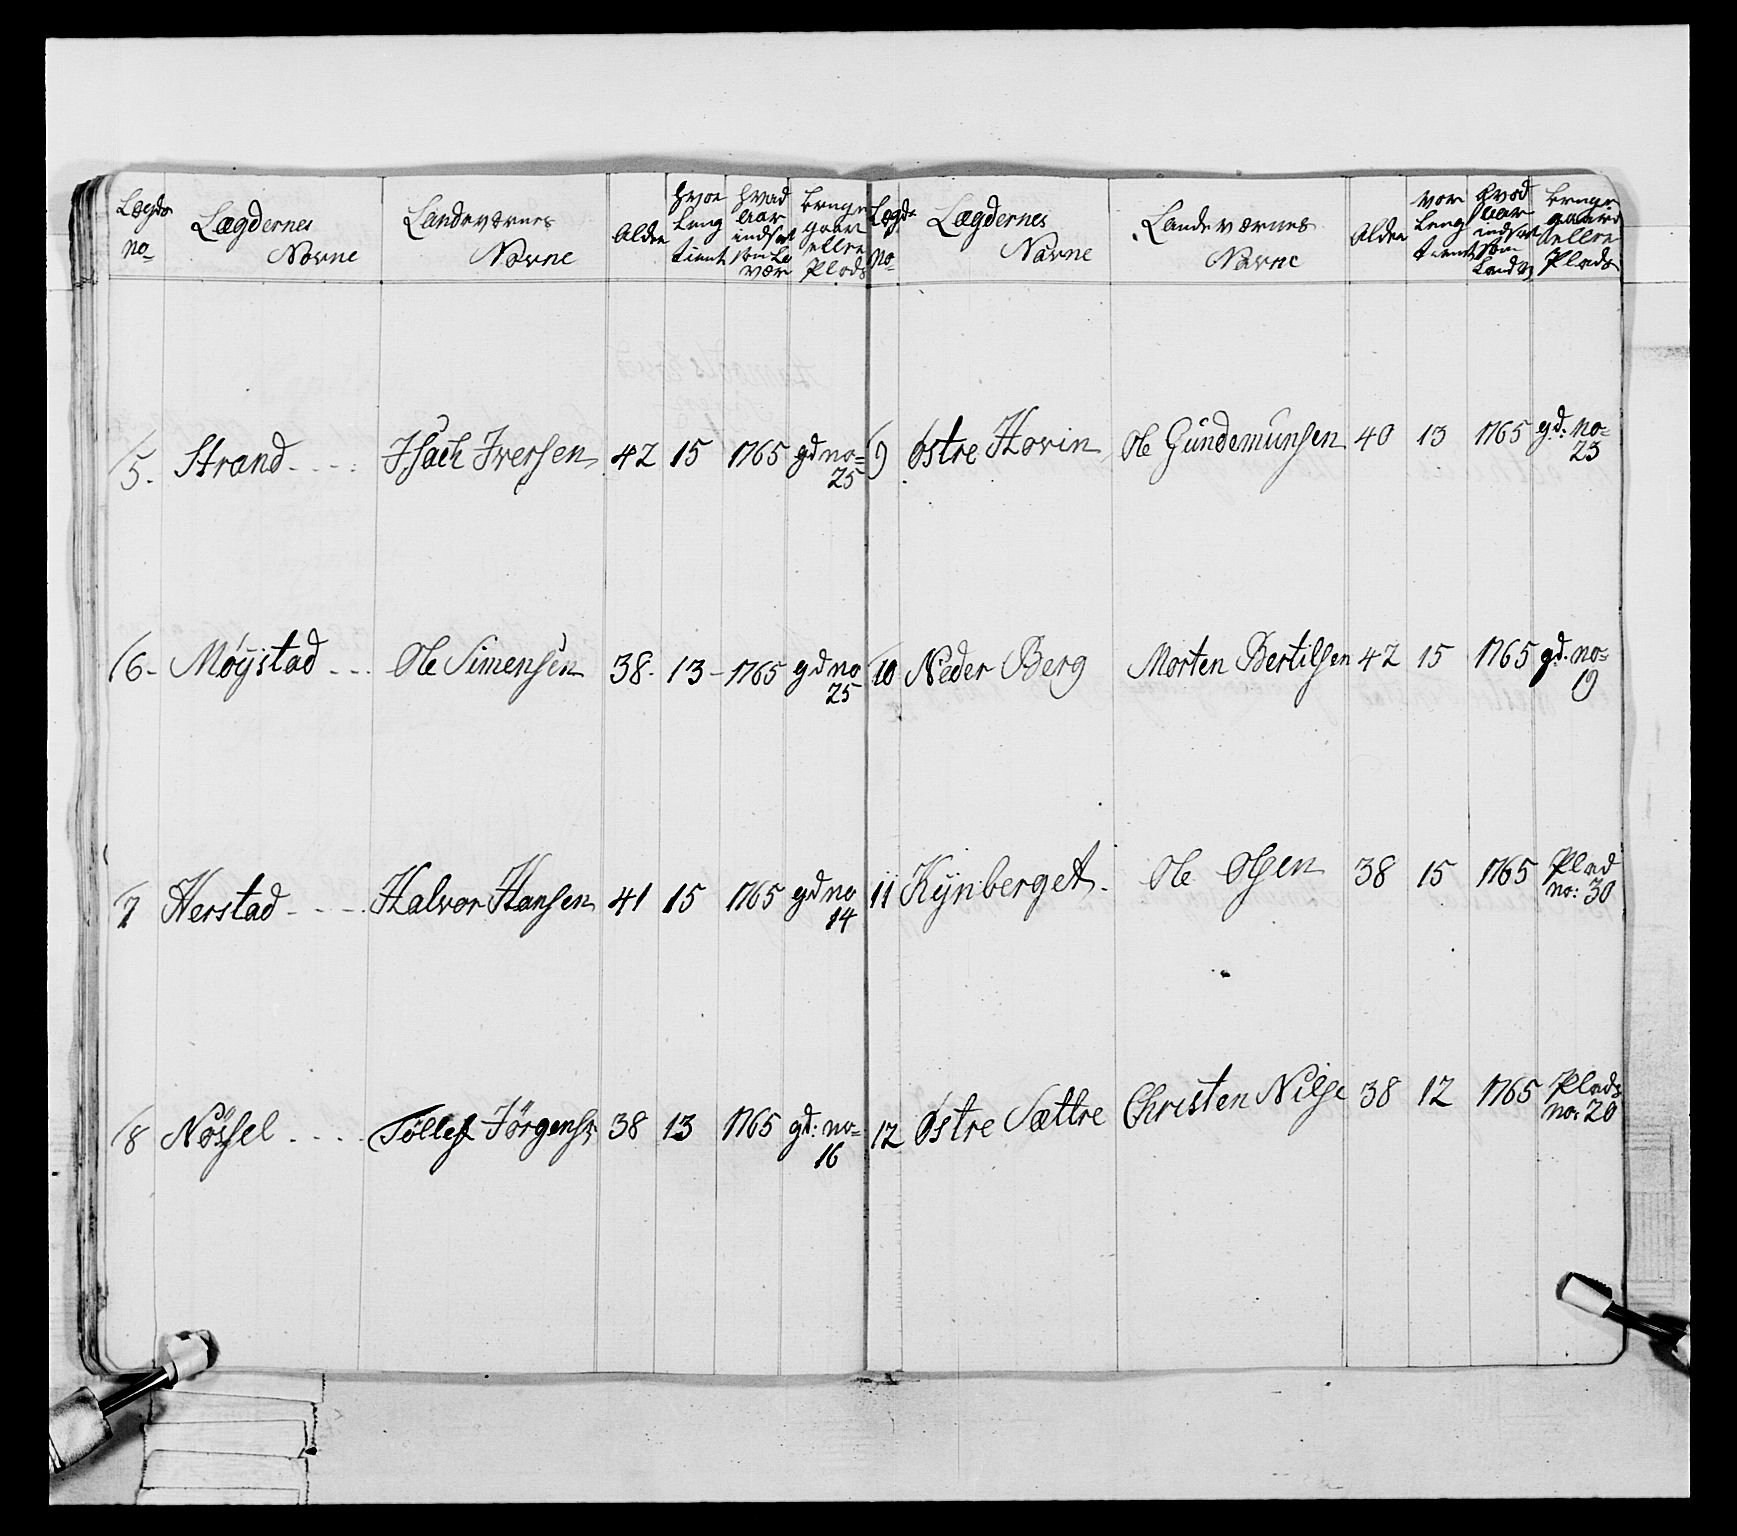 Lægds no=
Lægdernes Navne
Landeværnes Navne
Alder
hvor Leng tient
hvad Aar indsat som La vær
bruger gaar eller Plads
5. Strand Isach Iversen 42 15 1765 gd no=
25
6- Møystad Ole Simensen 38. 13- 1765 gd no
25
7 Herstad Halvor Hansen 41 15 1765 gd no
14
8 Nøssel Tøllef Jørgens: 38 13 1765 gd: no=
16
Lægds no=
Lægdernes Navne
Landeværnes Navne
Alder
vor Leng tient
hvad Aar indsat som Landv
bruger gaard eller Plads
9 østre Hovin Ole Gundemunsen 40 13 1765 gd: no=
23
10 Neder Berg Morten Bertilsen 42 15 1765 gd. no=
19
11 Kynberget. Ole Olsen 38 15 1765 Plad
no: 30
12 østre Sættre Christen Nilse 38 12 1765 Plads
no: 20